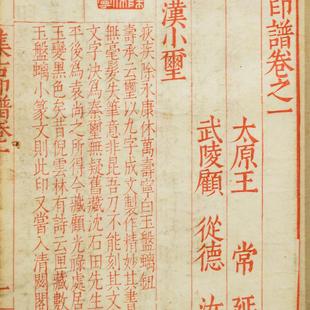 印譜卷之一
太原王 常 延
武陵顧 從德 汝
漢小璽
疢疾除永康休萬壽寧白玉盤螭鈕
壽承云璽以九字成文製作精妙其書
無毫髮失筆意非昆吾刀不能刻其文
文字決為秦璽無疑舊藏沈石田先生
平後為袁尚之所得今藏顧光祿處居
玉變黑色矣昔倪雲林有詩云匣藏數
玉盤螭小篆文則此印又嘗入清閟閣
集古印譜卷一